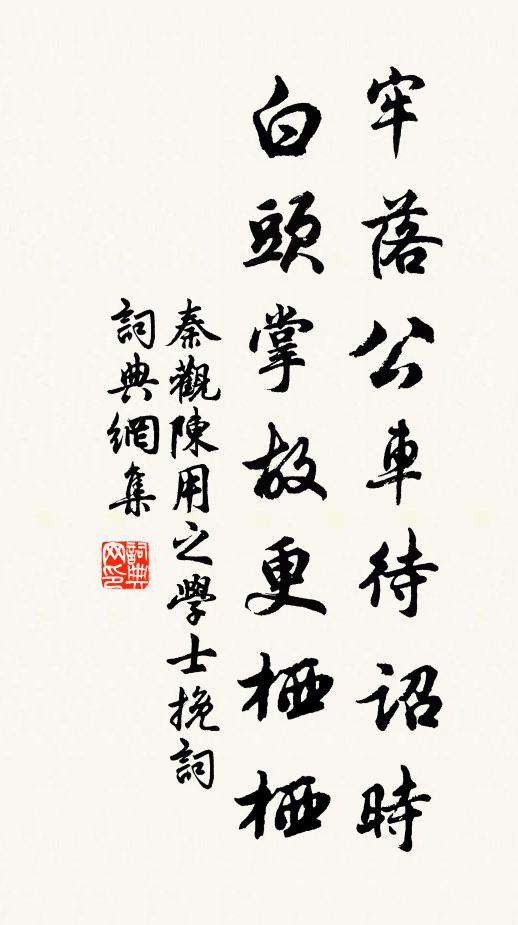 牢落公車待詔時
白頭掌故更栖栖
秦觀陳用之學士挽詞
詞典網集
詞典
网印